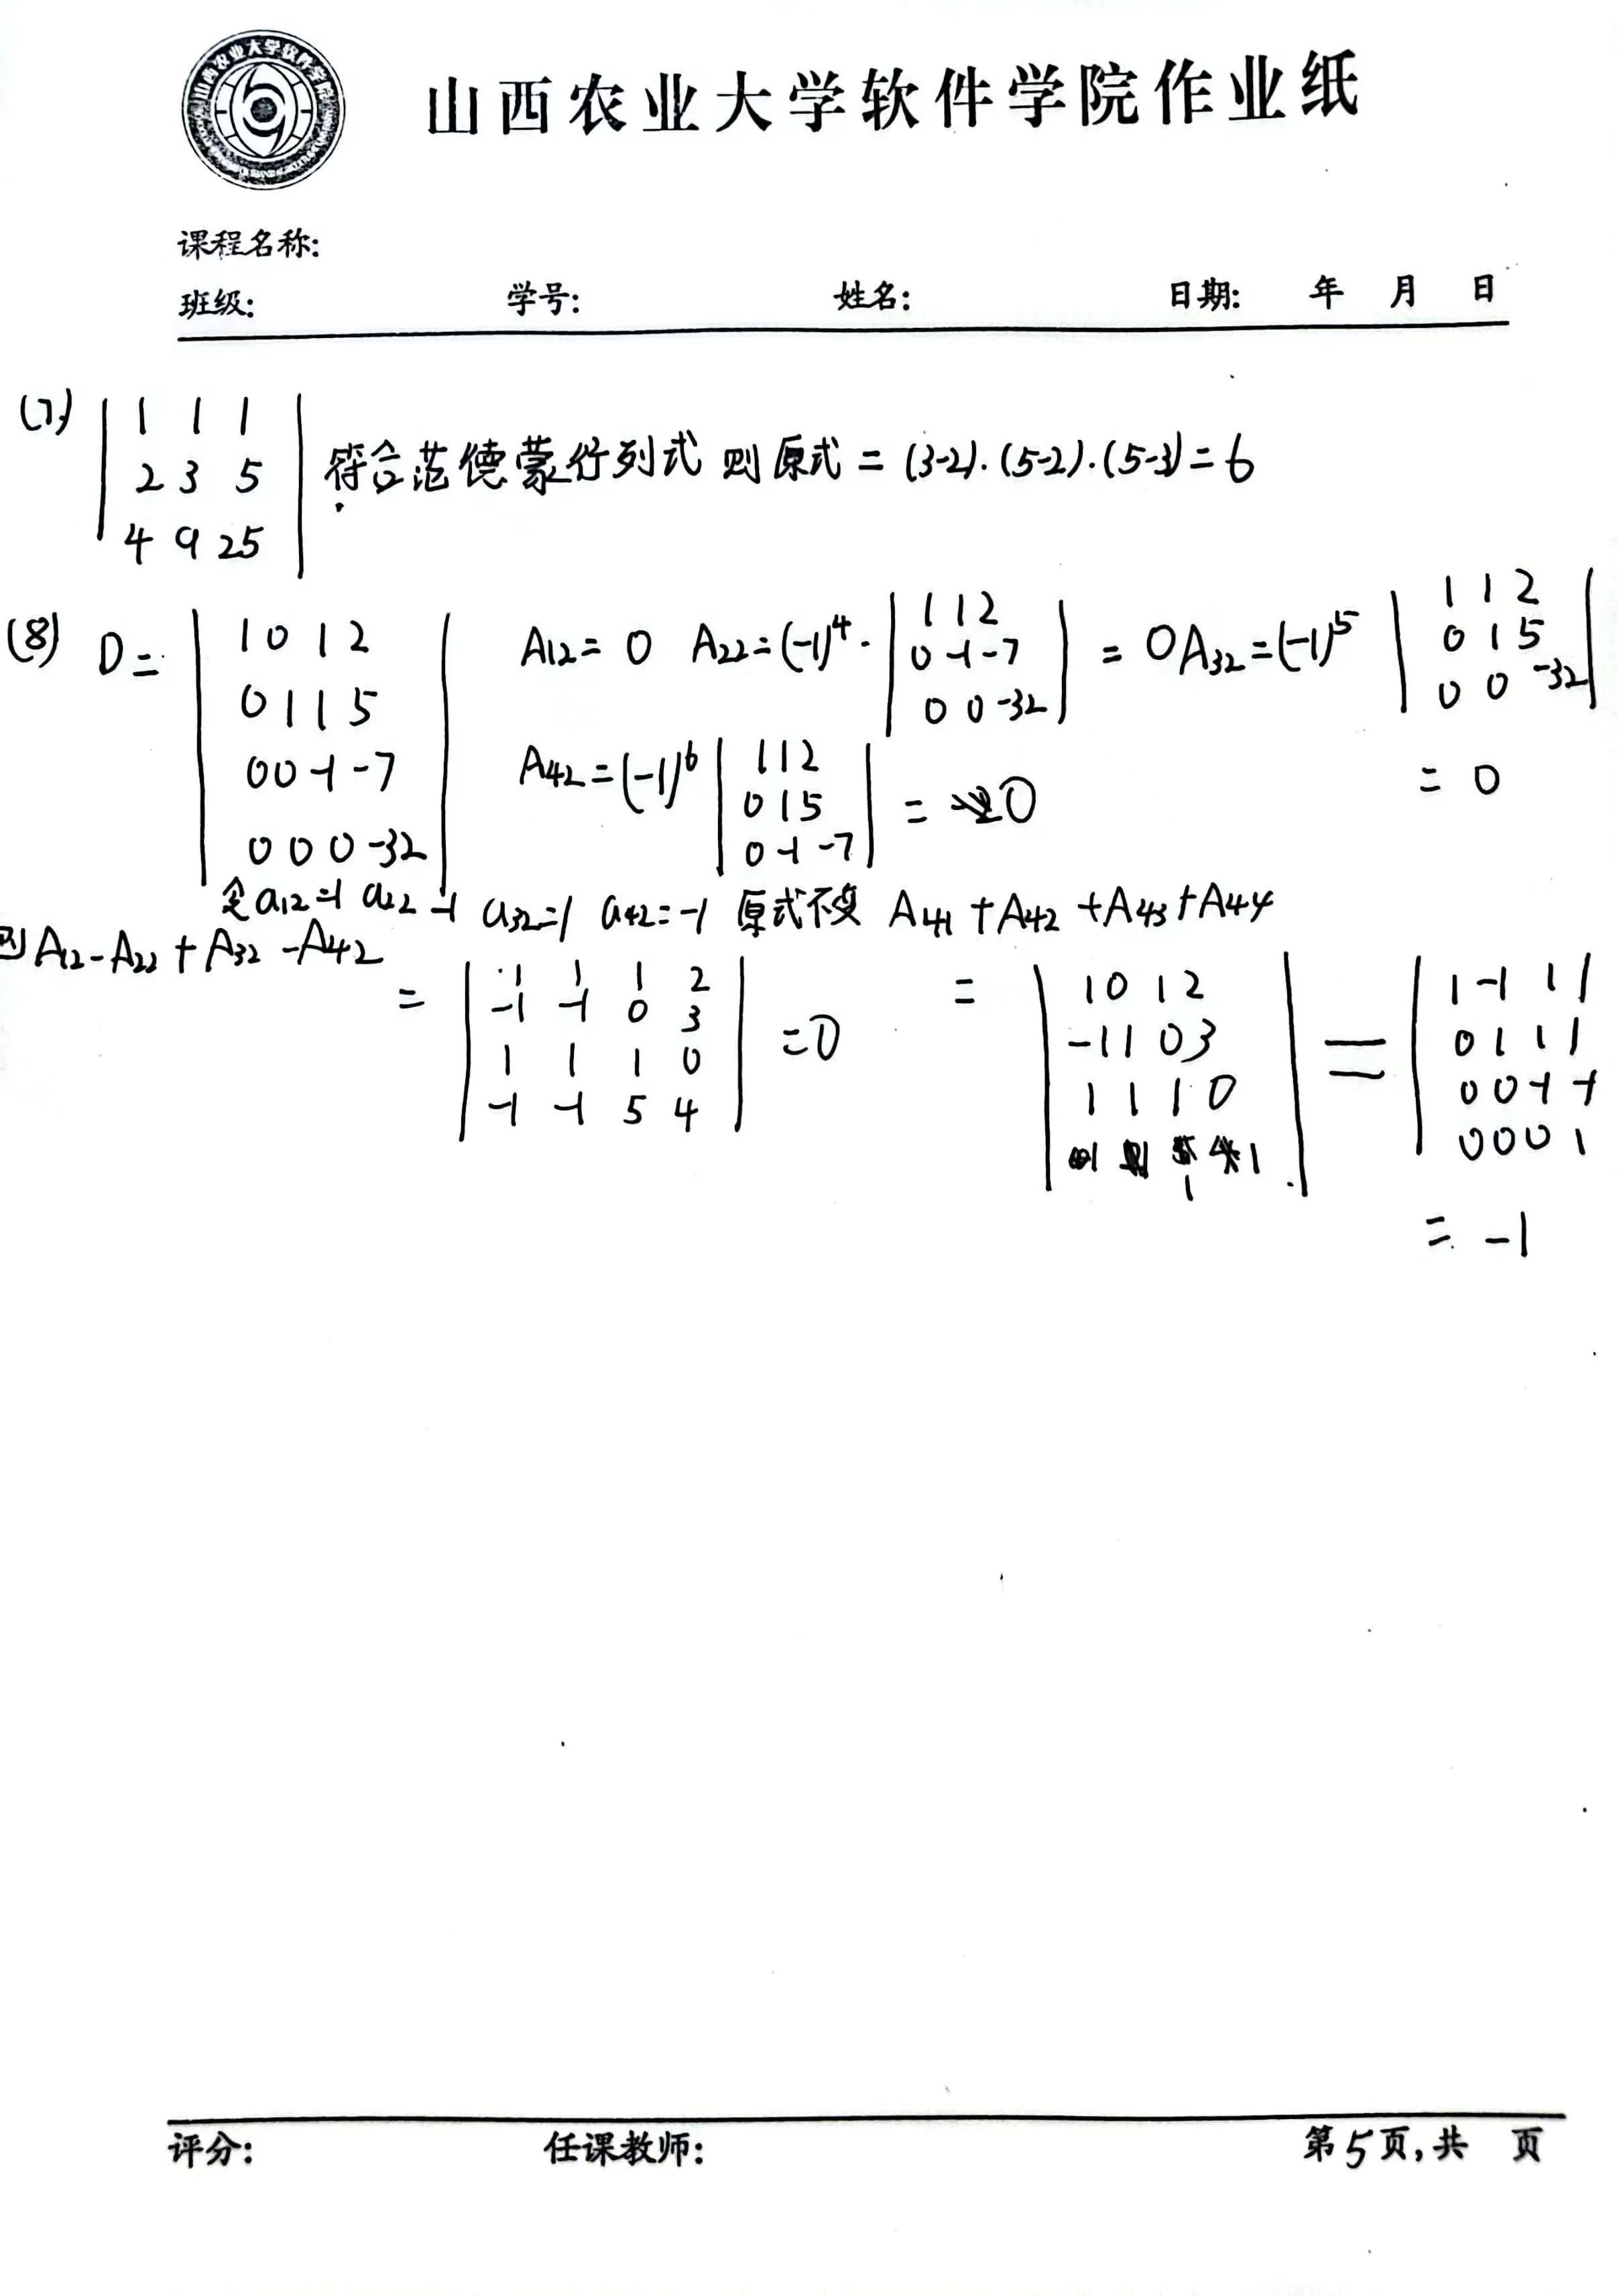 山西农业大学软件学院作业纸
课程名称:
班级: 学号: 姓名: 日期: 年 月 日
(7)
1 1 1
2 3 5
4 9 25
符合范德蒙行列式 则原式 = (3-2)·(5-2)·(5-3) = 6
(8) D =
1 0 1 2
0 1 1 5
0 0 -1 -7
0 0 0 -32
A12 = 0 A22 = (-1)^4 ·
1 1 2
0 -1 -7
0 0 -32
= 0 A32 = (-1)^5
1 1 2
0 1 5
0 0 -32
= 0
A42 = (-1)^6
1 1 2
0 1 5
0 -1 -7
= 0
a12=1 a22=-1 a32=1 a42=-1 原式不变
则A12 - A22 + A32 - A42
=
1 1 1 2
-1 -1 0 3
1 1 1 0
-1 -1 5 4
= 0
A41 + A42 + A43 + A44
=
1 0 1 2
-1 1 0 3
1 1 1 0
1 1 1 1
=
1 -1 1 1
0 1 1 1
0 0 -1 -1
0 0 0 1
= -1
评分: 任课教师: 第5页,共 页